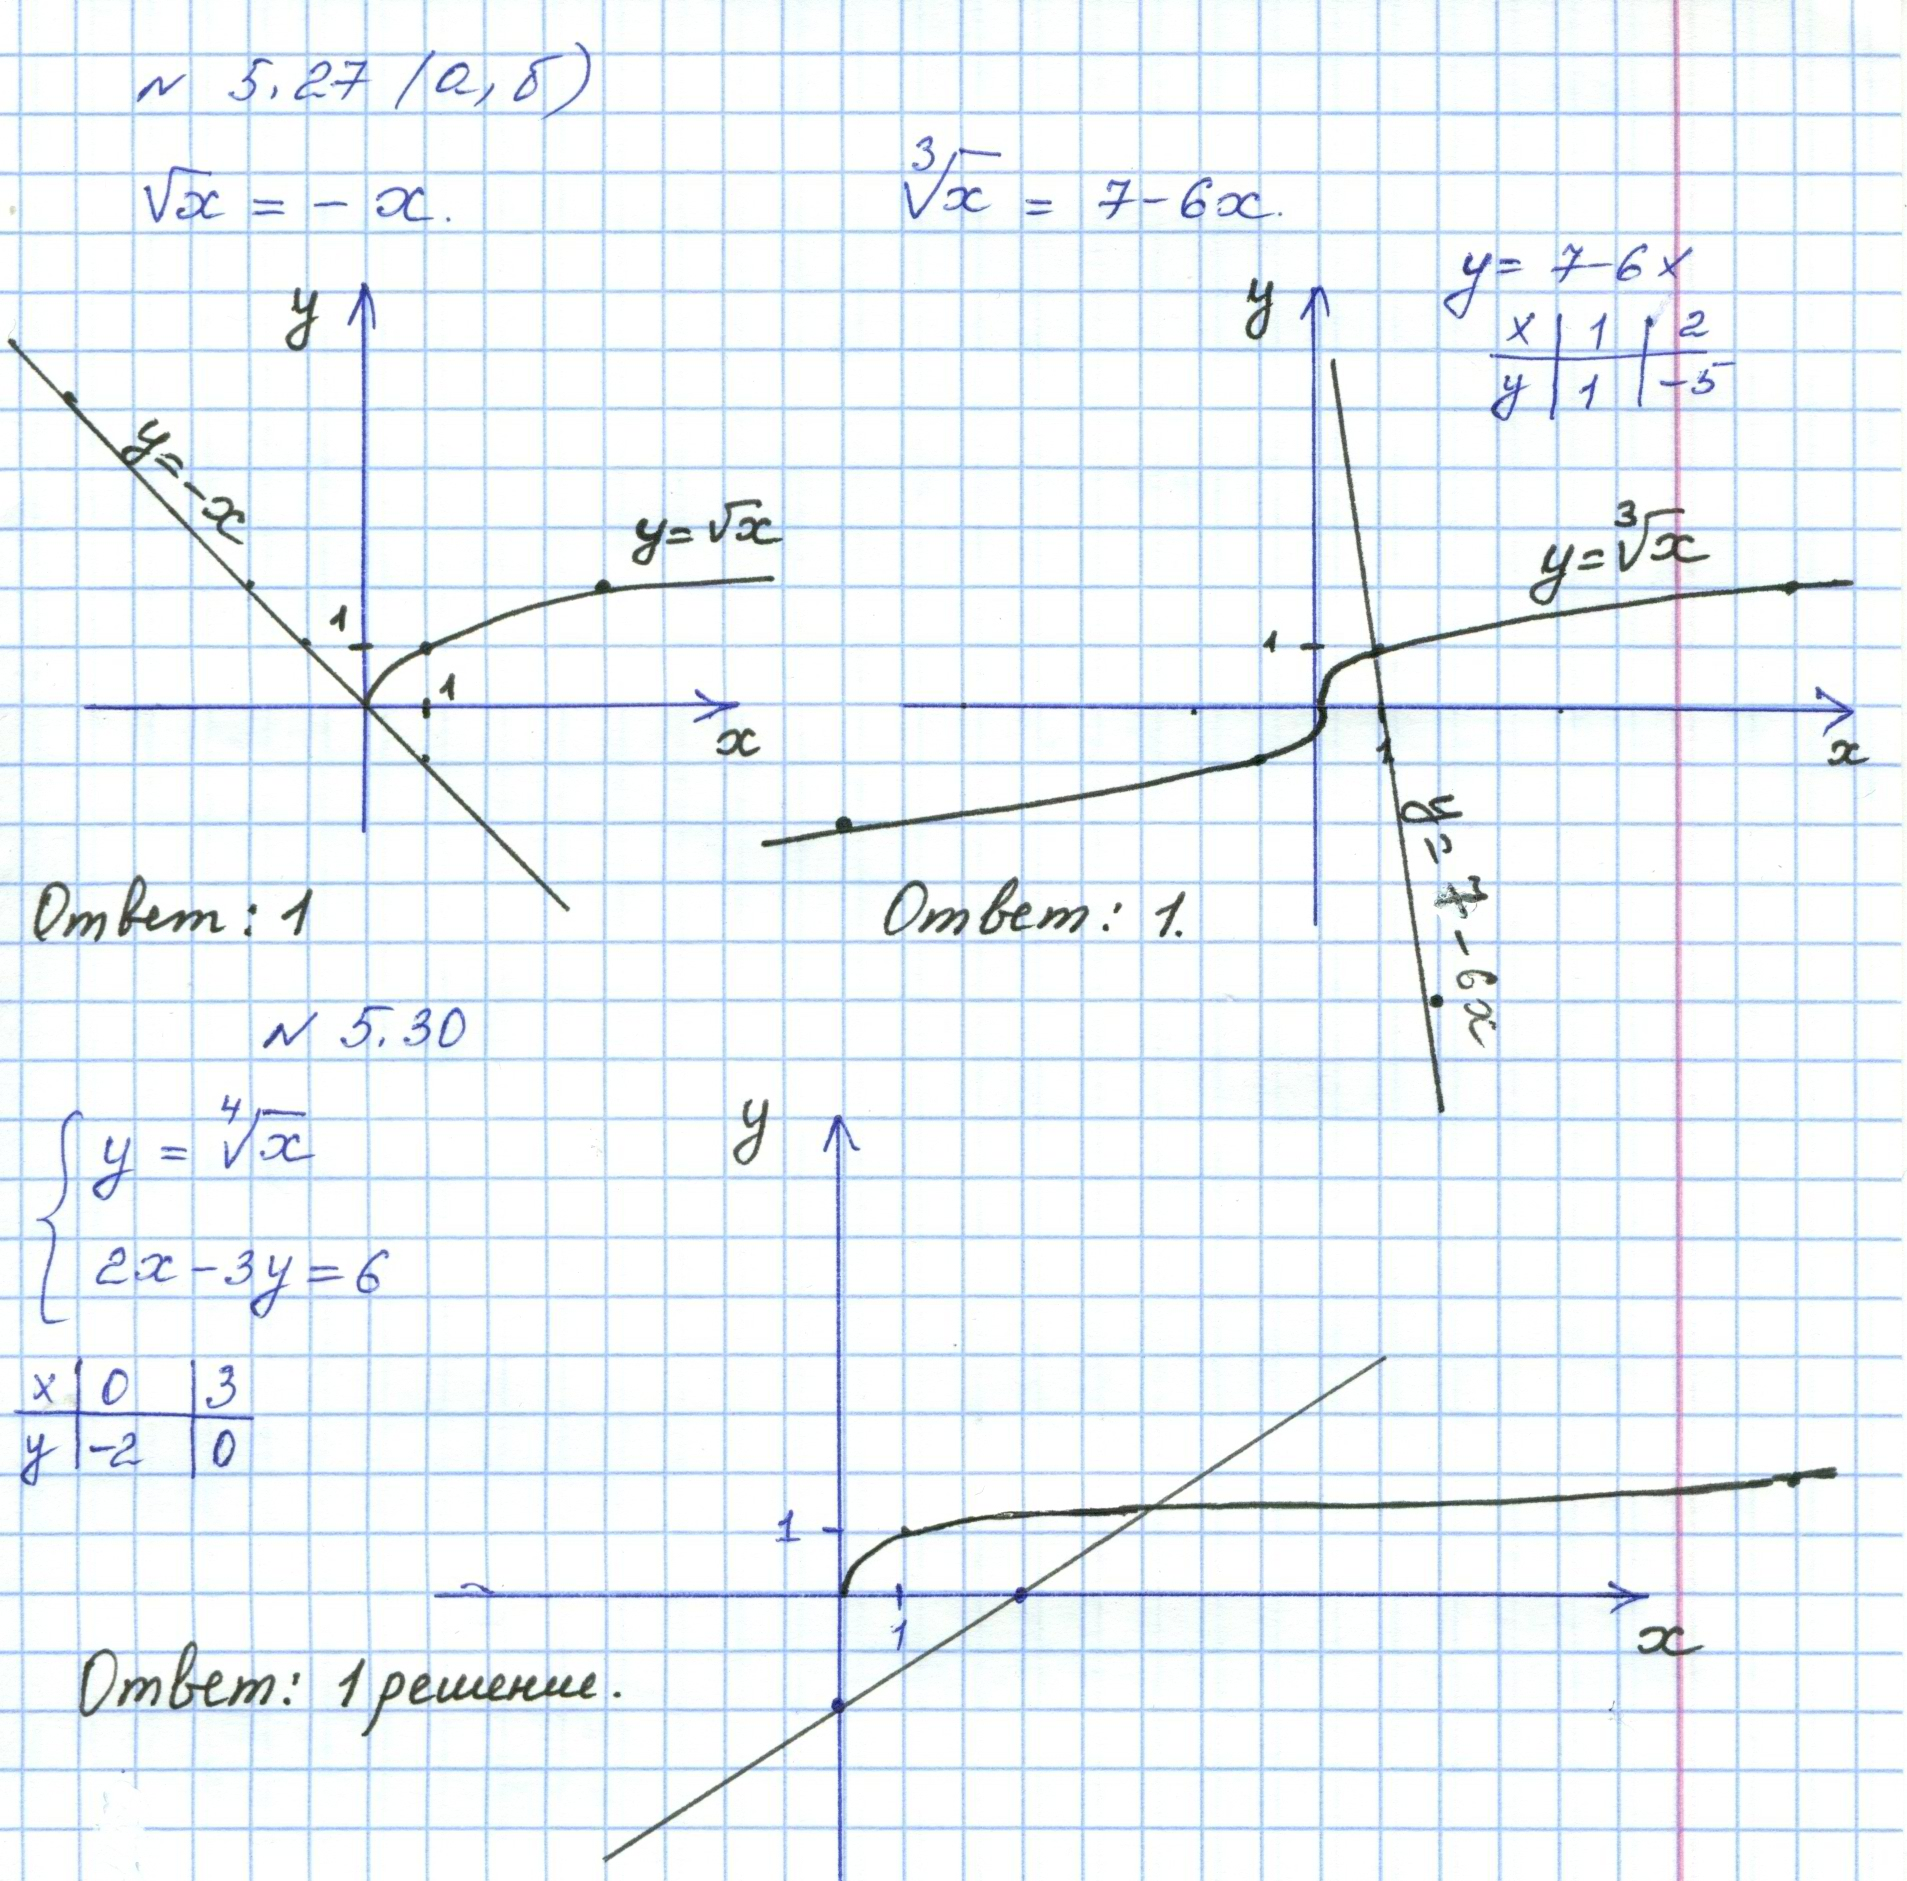 N 5.27 (а, б)
√x = - x.
y
y = -x
y = √x
1
1
x
Ответ: 1
∛x = 7-6x.
y = 7-6x
x | 1 | 2
y | 1 | -5
y
y = ∛x
1
1
x
y = 7 - 6x
Ответ: 1.
N 5.30
{ y = ∜x
2x - 3y = 6
x | 0 | 3
y | -2 | 0
y
1
1
x
Ответ: 1 решение.